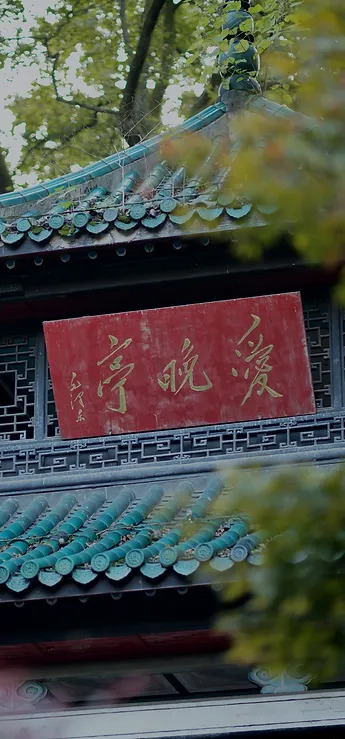 愛晚亭
毛澤东